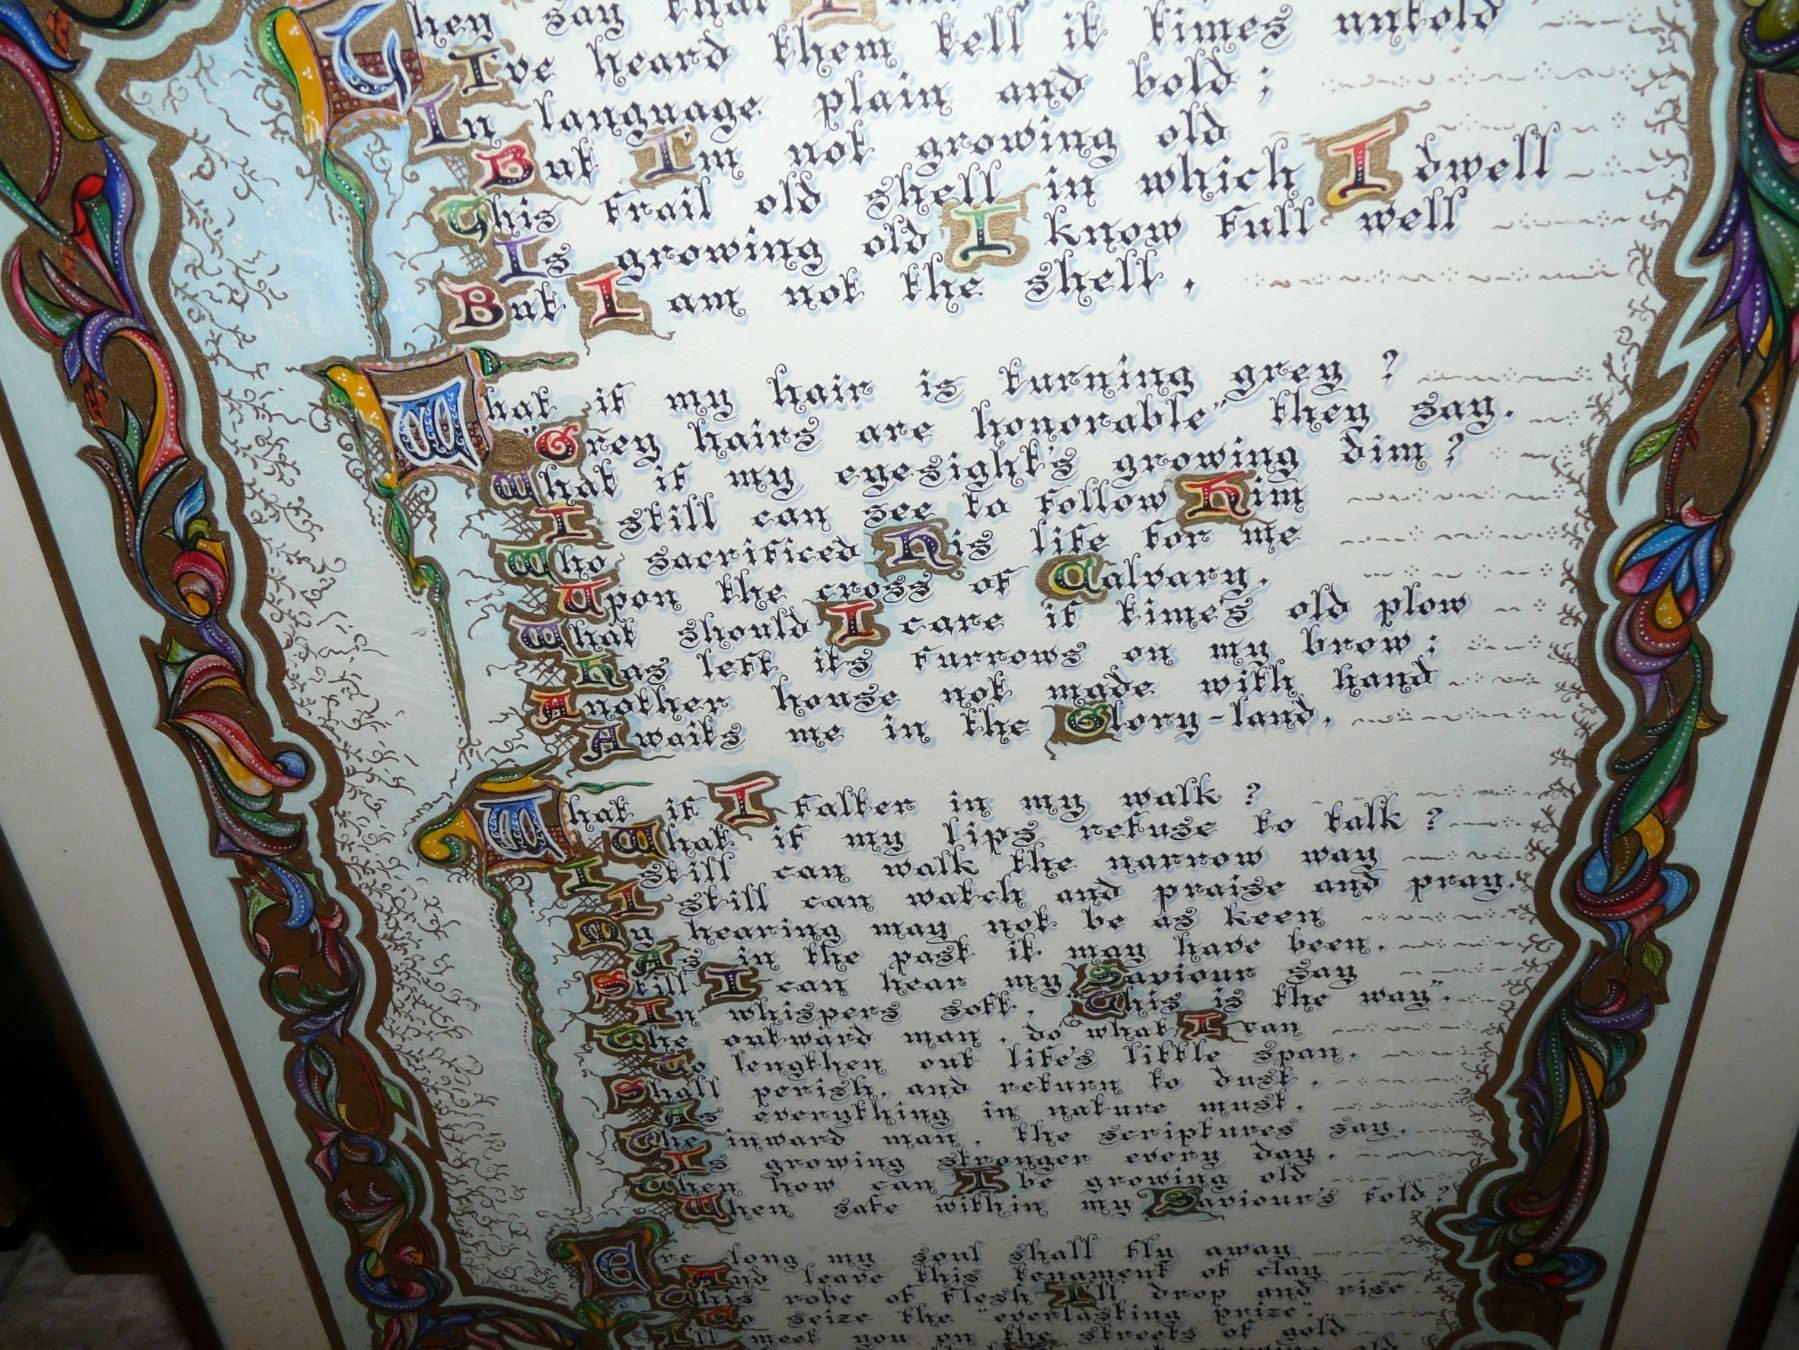 They say that I
I've heard them tell it times untold
In language plain and bold;
But I'm not growing old
This frail old shell in which I dwell
Is growing old I know full well
But I am not the shell.
What if my hair is turning grey?
"Grey hairs are honorable" they say.
What if my eyesight's growing dim?
I still can see to follow Him
Who sacrificed His life for me
Upon the cross of Calvary.
What should I care if time's old plow
Has left its furrows on my brow;
Another house not made with hand
Awaits me in the Glory-land.
What if I falter in my walk?
What if my lips refuse to talk?
I still can walk the narrow way
I still can watch and praise and pray.
My hearing may not be as keen
As in the past it may have been.
Still I can hear my Saviour say
In whispers soft, "This is the way".
The outward man, do what I can
To lengthen out life's little span,
Shall perish, and return to dust,
As everything in nature must.
The inward man, the scriptures say,
Is growing stronger every day.
When how can I be growing old
When safe within my Saviour's fold?
Ere long my soul shall fly away
And leave this tenament of clay
This robe of flesh I'll drop and rise
To seize the "everlasting prize;
I'll meet you on the streets of gold
growing old